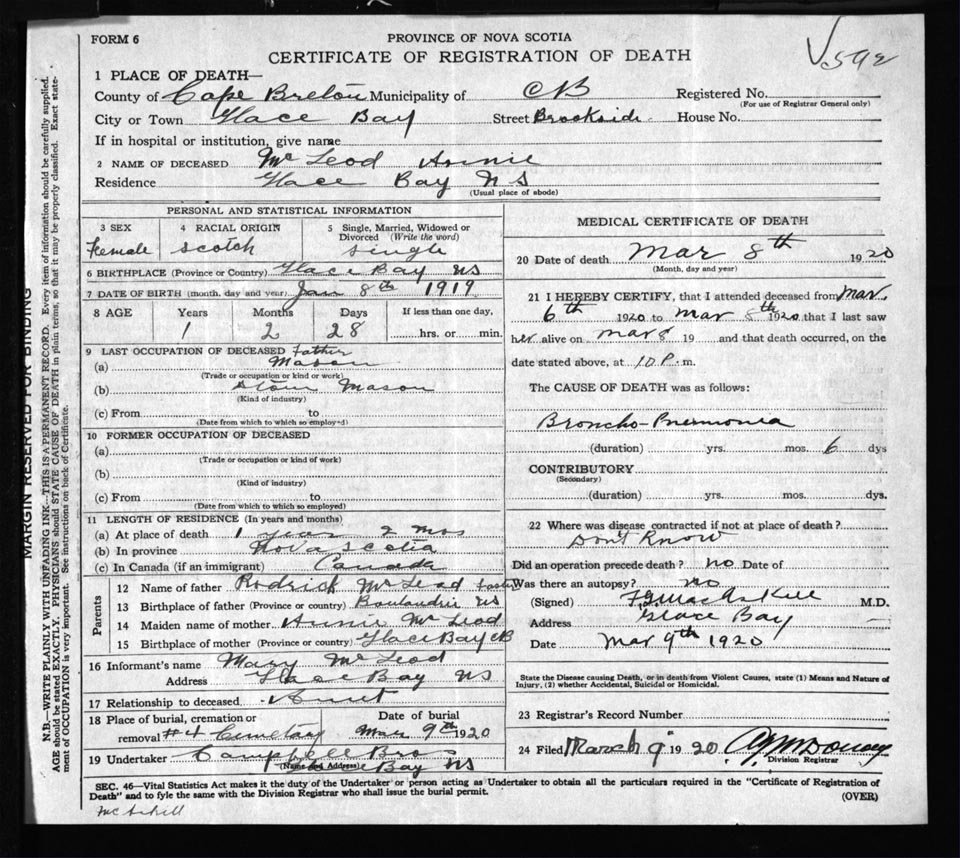 FORM 6
PROVINCE OF NOVA SCOTIA
CERTIFICATE OF REGISTRATION OF DEATH
1 PLACE OF DEATH—
County of Cape Breton Municipality of CB Registered No.
(For use of Registrar General only)
City or Town Glace Bay Street Brookside House No.
If in hospital or institution, give name
2 NAME OF DECEASED Mc Leod Annie
Residence Glace Bay N S
(Usual place of abode)
PERSONAL AND STATISTICAL INFORMATION
3 SEX 4 RACIAL ORIGIN 5 Single, Married, Widowed or
Divorced (Write the word)
Female Scotch Single
6 BIRTHPLACE (Province or Country) Glace Bay NS
7 DATE OF BIRTH (month, day and year) Jan 8th 1919
8 AGE Years Months Days If less than one day,
1 2 28 hrs. or min.
9 LAST OCCUPATION OF DECEASED Father
(a) Mason
(Trade or occupation or kind of work)
(b) Stone Mason
(Kind of industry)
(c) From to
(Date from which to which so employed)
10 FORMER OCCUPATION OF DECEASED
(a)
(Trade or occupation or kind of work)
(b)
(Kind of industry)
(c) From to
(Date from which to which so employed)
11 LENGTH OF RESIDENCE (In years and months)
(a) At place of death 1 year 2 mos
(b) In province Nova Scotia
(c) In Canada (if an immigrant) Canada
Parents
12 Name of father Rodrick Mc Leod
13 Birthplace of father (Province or country) Boularderie NS
14 Maiden name of mother Annie Mc Leod
15 Birthplace of mother (Province or country) Glace Bay CB
16 Informant's name Mary Mc Leod
Address Glace Bay NS
17 Relationship to deceased Aunt
18 Place of burial, cremation or Date of burial
removal #4 Cemetary Mar 9th 1920
19 Undertaker Campbell Bros
(Name and Address)
Glace Bay NS
MEDICAL CERTIFICATE OF DEATH
20 Date of death Mar 8th 1920
(Month, day and year)
21 I HEREBY CERTIFY, that I attended deceased from Mar
6th 1920 to Mar 8th 1920 that I last saw
her alive on Mar 8 19 and that death occurred, on the
date stated above, at 10 P. m.
The CAUSE OF DEATH was as follows:
Broncho-Pnemonia
(duration) yrs. mos. 6 dys
CONTRIBUTORY
(Secondary)
(duration) yrs. mos. dys.
22 Where was disease contracted if not at place of death?
Don't Know
Did an operation precede death? no Date of
Was there an autopsy? no
(Signed) MacAskill M.D.
Address Glace Bay
Date Mar 9th 1920
State the Disease causing Death, or in death from Violent Causes, state (1) Means and Nature of
Injury, (2) whether Accidental, Suicidal or Homicidal.
23 Registrar's Record Number
24 Filed March 9 1920
Division Registrar
SEC. 46—Vital Statistics Act makes it the duty of the Undertaker or person acting as Undertaker to obtain all the particulars required in the "Certificate of Registration of
Death" and to fyle the same with the Division Registrar who shall issue the burial permit.
(OVER)
McAskill
MARGIN RESERVED FOR BINDING
N.B.—WRITE PLAINLY, WITH UNFADING INK—THIS IS A PERMANENT RECORD. Every item of information should be carefully supplied.
AGE should be stated EXACTLY. PHYSICIANS should STATE CAUSE OF DEATH in plain terms, so that it may be properly classified. Exact state-
ment of OCCUPATION is very important. See instructions on back of Certificate.